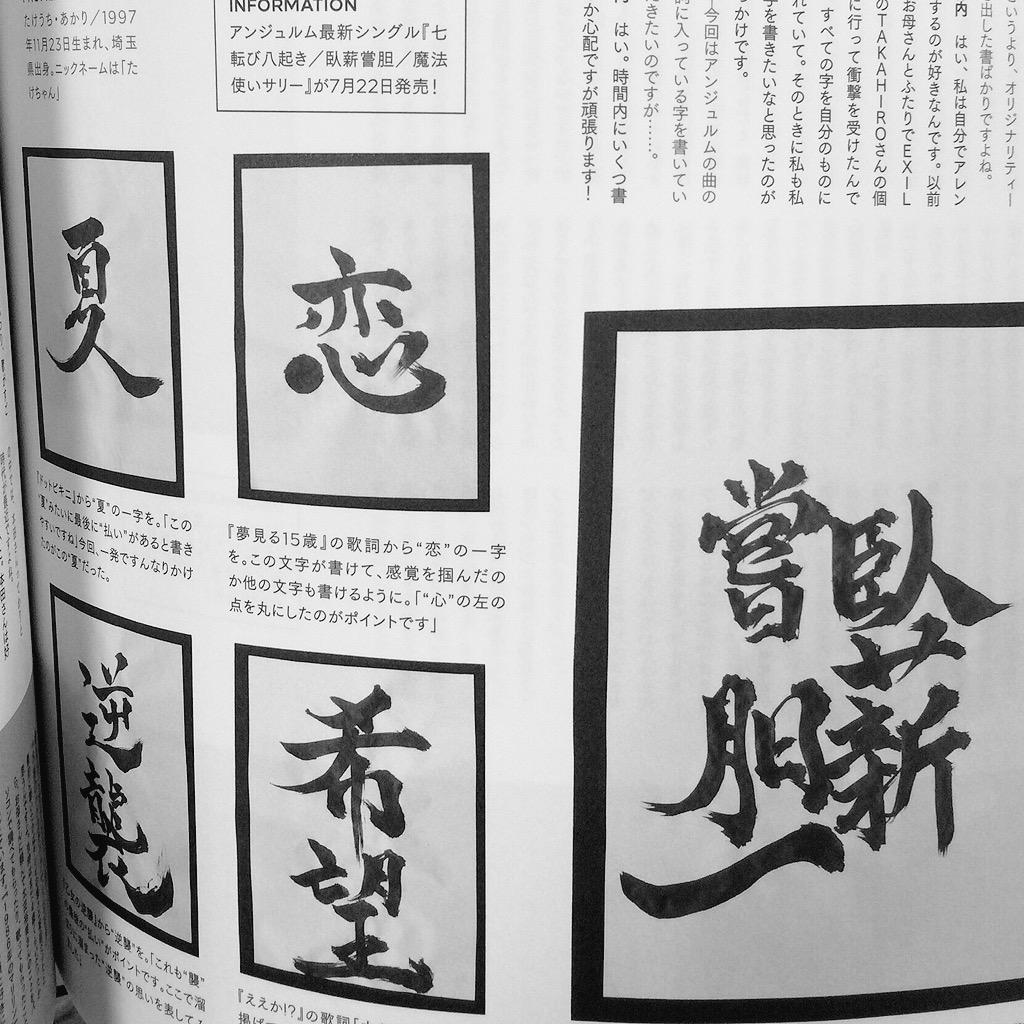 たけうち・あかり/1997
年11月23日生まれ、埼玉
県出身。ニックネームは「た
けちゃん」
INFORMATION
アンジュルム最新シングル『七
転び八起き/臥薪嘗胆/魔法
使いサリー』が7月22日発売!
というより、オリジナリティー
出した書ばかりですよね。
内 はい、私は自分でアレン
するのが好きなんです。以前
お母さんとふたりでEXIL
のTAKAHIROさんの個
に行って衝撃を受けたんで
すべての字を自分のものに
れていて。そのときに私も私
字を書きたいなと思ったのが
っかけです。
今回はアンジュルムの曲の
詞に入っている字を書いてい
だきたいのですが……。
はい。時間内にいくつ書
か心配ですが頑張ります!
夏
『ドットビキニ』から“夏”の一字を。「この
“夏”みたいに最後に“払い”があると書き
やすいですね」今回、一発ですんなりかけ
たのがこの“夏”だった。
恋
『夢見る15歳』の歌詞から“恋”の一字
を。この文字が書けて、感覚を掴んだの
か他の文字も書けるように。「“心”の左の
点を丸にしたのがポイントです」
臥薪
嘗胆
逆襲
の逆襲』から“逆襲”を。「これも“襲”
の最後の“払い”がポイントです。ここで溜
“逆襲”の思いを表して
希望
『ええか!?』の歌詞